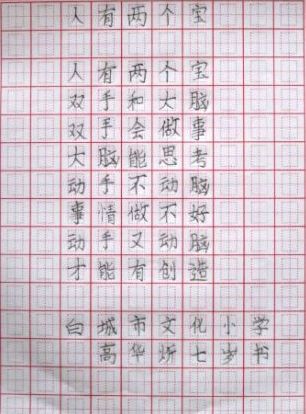 人有两个宝
人有两个宝
双手和大脑
双手会做事
大脑能思考
动手不动脑
事情做不好
动手又动脑
才能有创造
白城市文化小学
高华炘七岁书